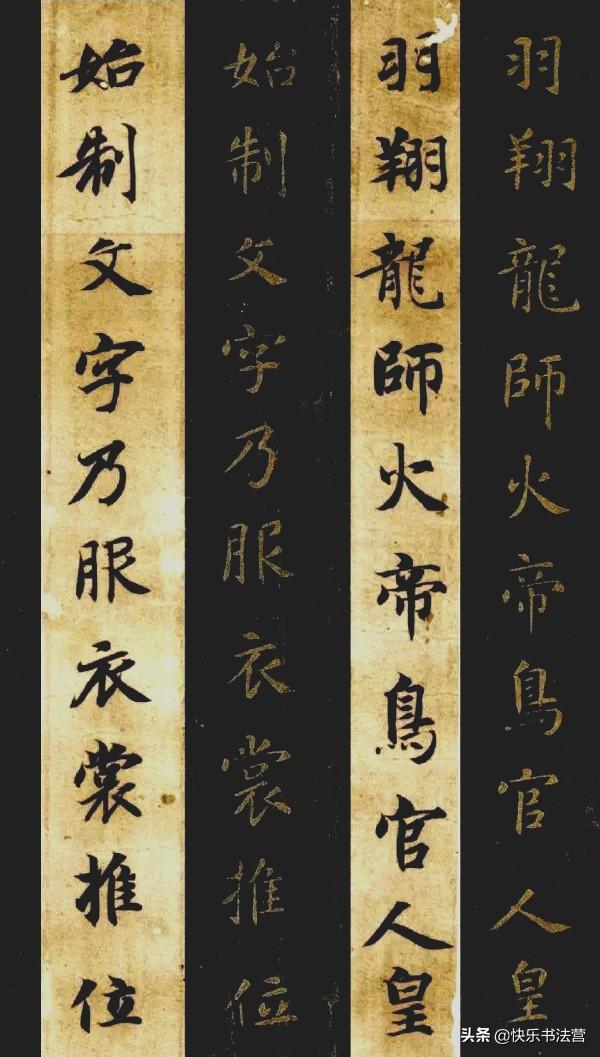 羽翔龍師火帝鳥官人皇
羽翔龍師火帝鳥官人皇
始制文字乃服衣裳推位
始制文字乃服衣裳推位
头条 @快乐书法营